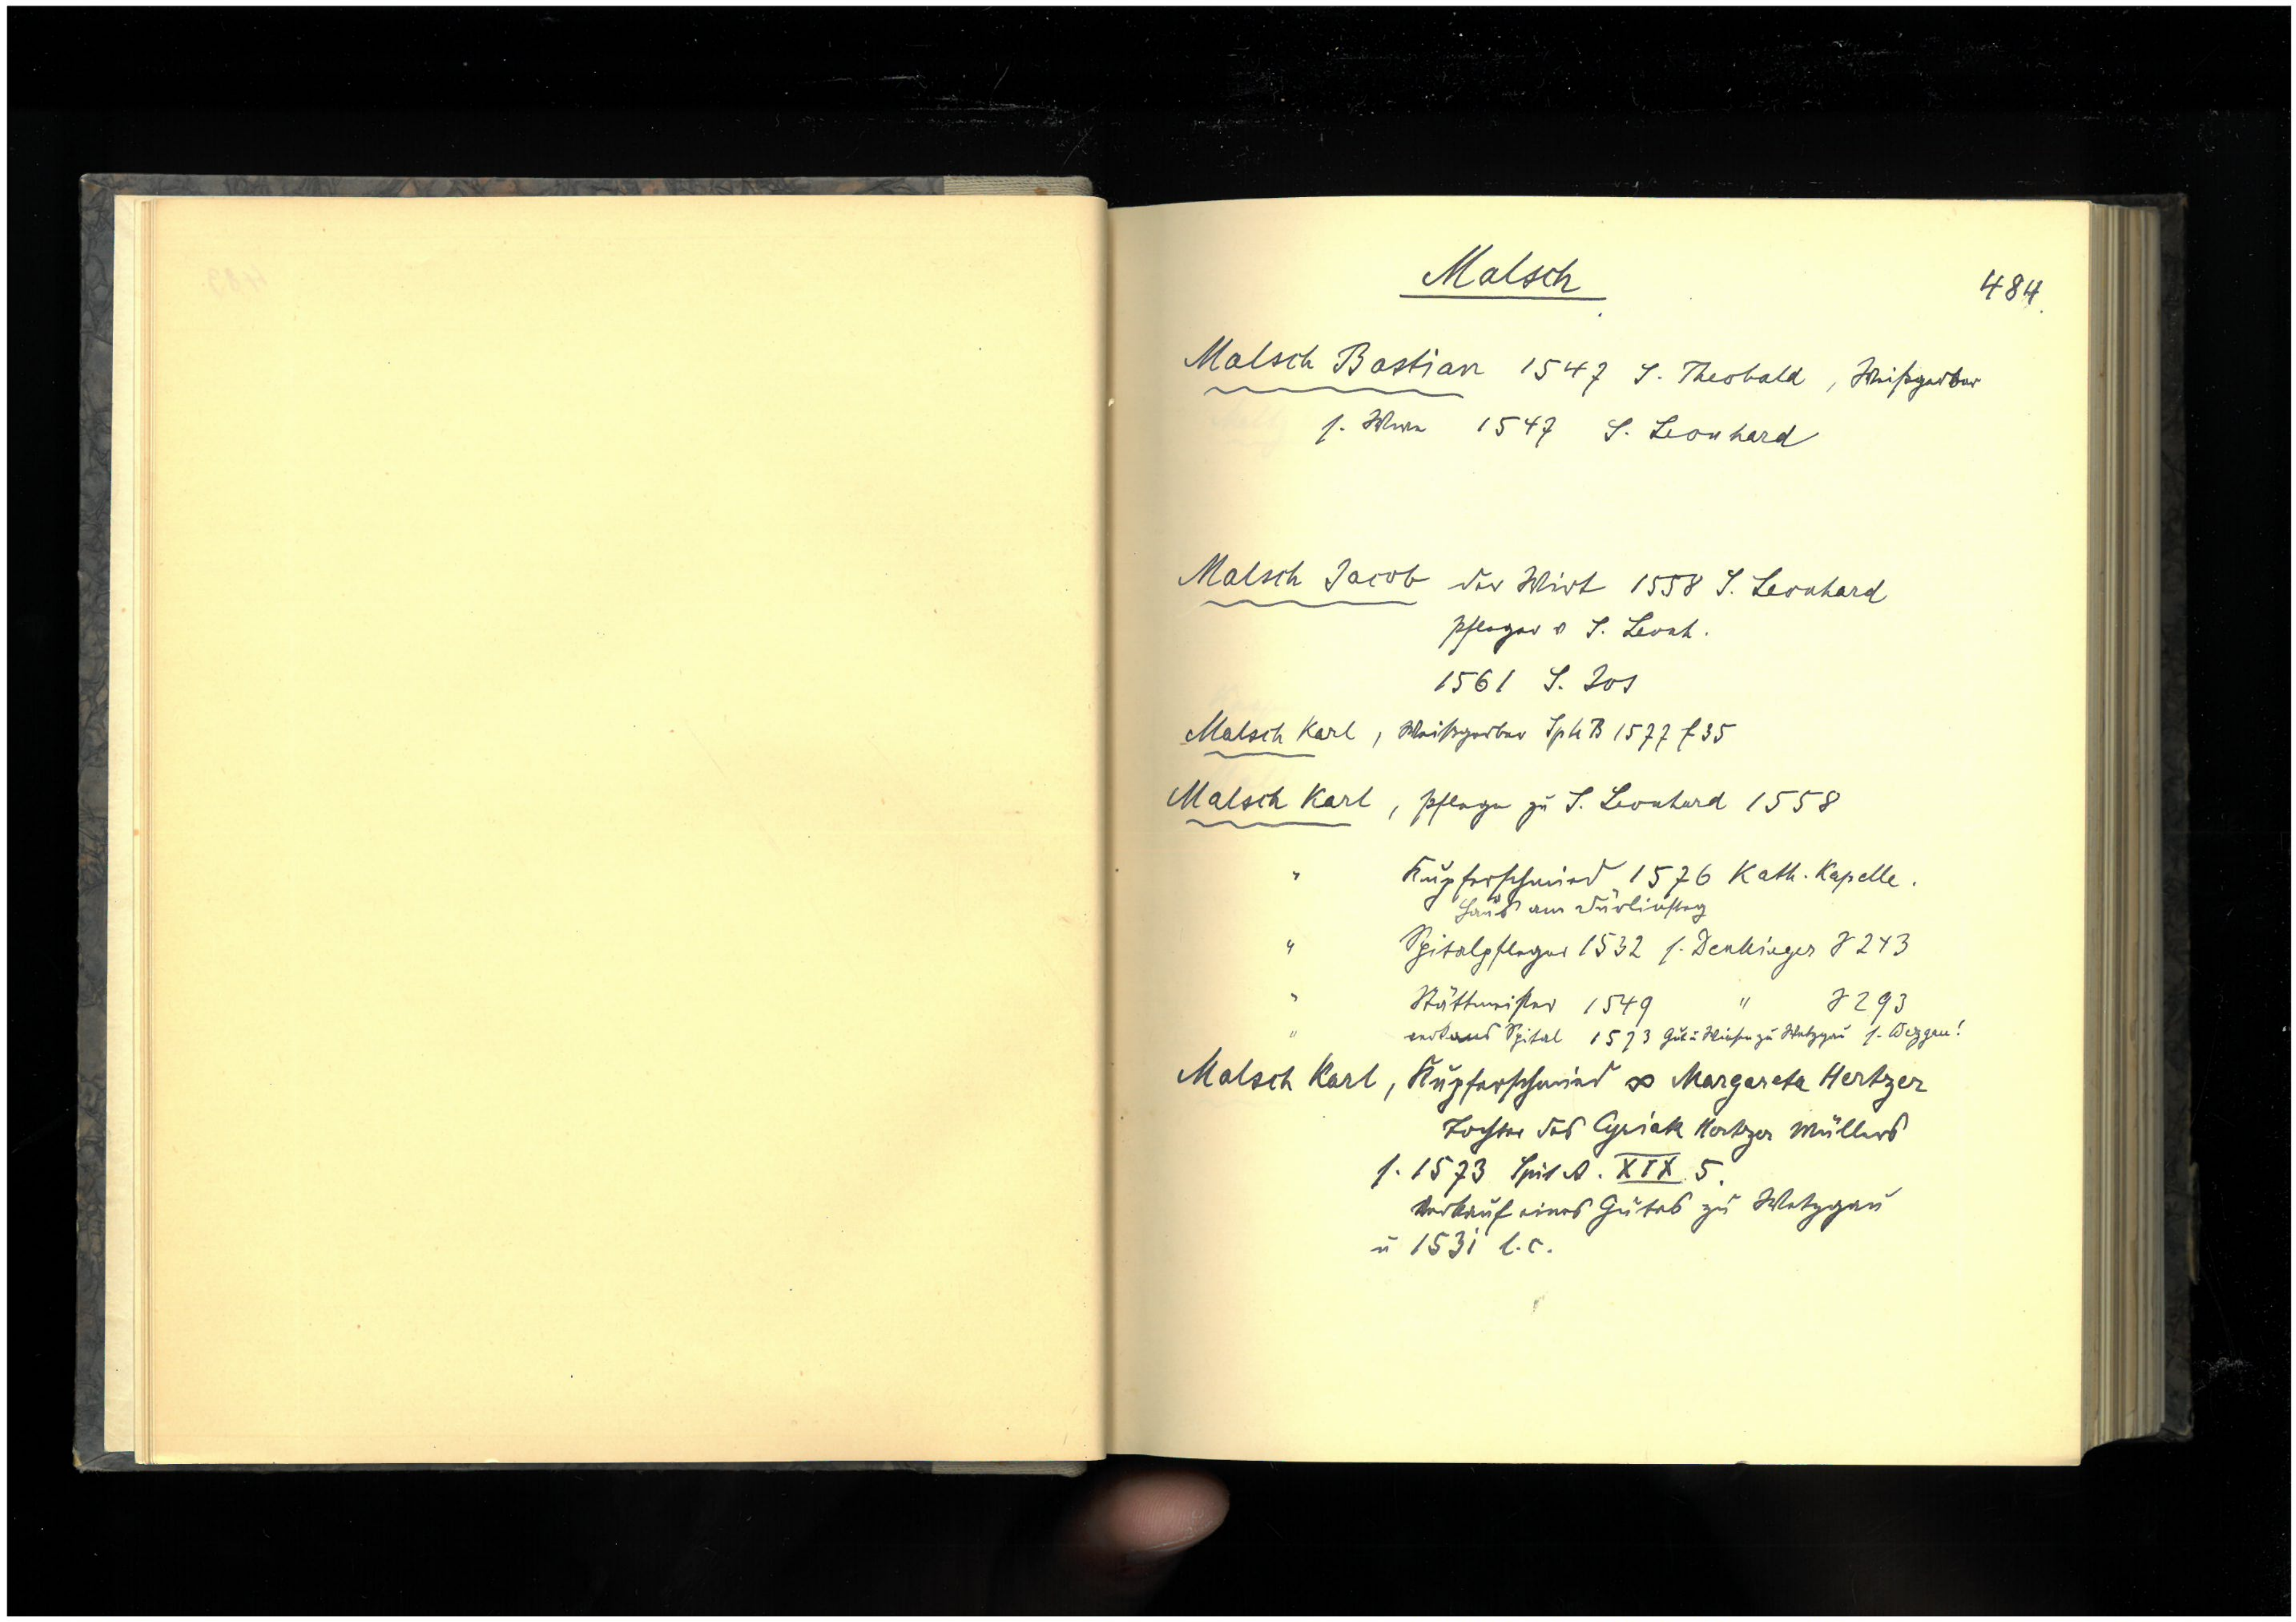 Malsch
484.
Malsch Bastian 1547 S. Theobald, Weißgerber
s. Wwe 1547 S. Leonhard
Malsch Jacob der Wirt 1558 S. Leonhard
Pfleger v S. Leonh.
1561 S. Jos
Malsch Karl, Weißgerber SphB 1577 f 35
Malsch Karl, Pfleger zu S. Leonhard 1558
" Kupferschmied 1576 Kath. Kapelle.
Haus am Türlinsteg
" Spitalpfleger 1532 s. Denkinger 243
" Stättmeister 1549 " 293
" Spital 1573 Gut u Wiesen zu Wetzgau s. Wezgau!
Malsch Karl, Kupferschmied ∞ Margareta Hertzer
Tochter des Cyriak Hertzer Müllers
s. 1573 Spit A. XIX 5.
Verkauf eines Gutes zu Wetzgau
u 1531 l.c.